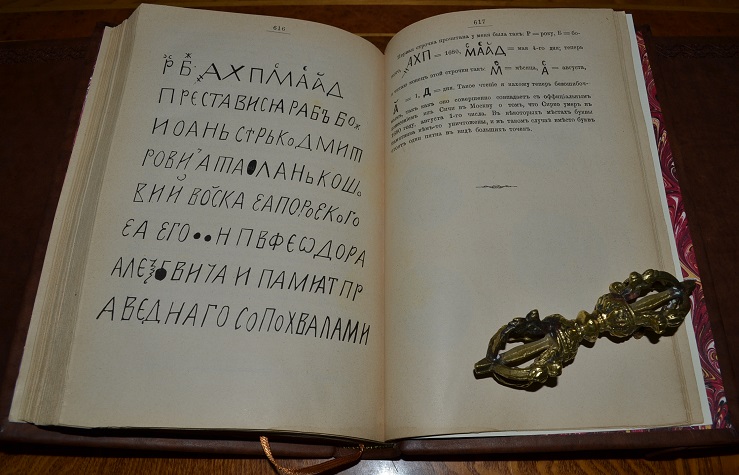 616
Р Б: АХП МАЙД
ПРЕСТАВИСЯ РАБЪ БОЖ
ИОАНЬ СТРЬКО ДМИТ
РОВИЧ АТА●ЛАНЬ КОШО
ВИЙ ВОЙСКА ЗАПОРОЗКОГО
ЗА ЕГО ●● Н П В ФЕѠДОРА
АЛЕѮ●ВИЧА И ПАМЯТ ПР
АВЕДНАГО СО ПОХВАЛАМИ
617
Первая строчка прочитана у меня была такъ: Р = року, Б = бо-
АХП = 1680, МААД = мая 4-го дня; теперь
конецъ этой строчки такъ: М = мѣсяца, А = августа,
А = 1, Д = дня. Такое чтеніе я нахожу теперь безошибоч-
такъ какъ оно совершенно совпадаетъ съ оффиціальнымъ
изъ Сичи въ Москву о томъ, что Сирко умеръ въ
1680 году, августа 1-го числа. Въ нѣкоторыхъ мѣстахъ буквы
памятника чѣмъ-то уничтожены, и въ такомъ случаѣ вмѣсто буквъ
стоятъ одни пятна въ видѣ большихъ точекъ.